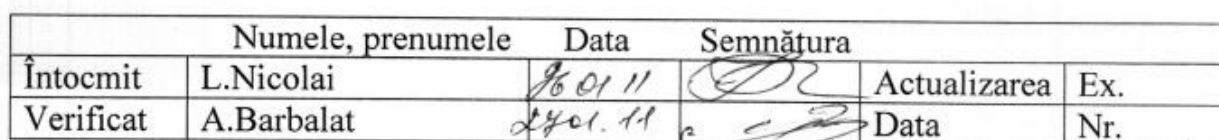 Numele, prenumele Data Semnătura
Întocmit L.Nicolai 26 01 11 Actualizarea Ex.
Verificat A.Barbalat 2701.11 Data Nr.